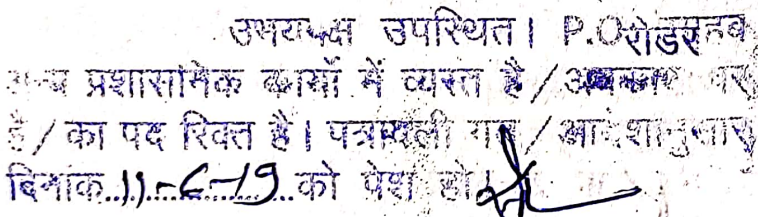 उभयपक्ष उपस्थित। P.O. रीडर साहब
अन्य प्रशासनिक कार्यो में व्यस्त है / अवकाश पर
है / का पद रिक्त है। पत्रावली गत / आदेशानुसार
दिनांक..11-6-19..को पेश हो